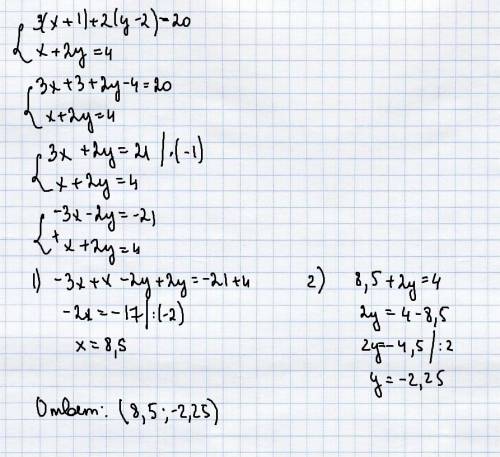 3(x+1)+2(y-2)=20
x+2y=4
3x+3+2y-4=20
x+2y=4
3x+2y=21 |·(-1)
x+2y=4
-3x-2y=-21
+ x+2y=4
1) -3x+x-2y+2y=-21+4
-2x=-17 |:(-2)
x=8,5
2) 8,5+2y=4
2y=4-8,5
2y=-4,5 |:2
y=-2,25
Ответ: (8,5;-2,25)